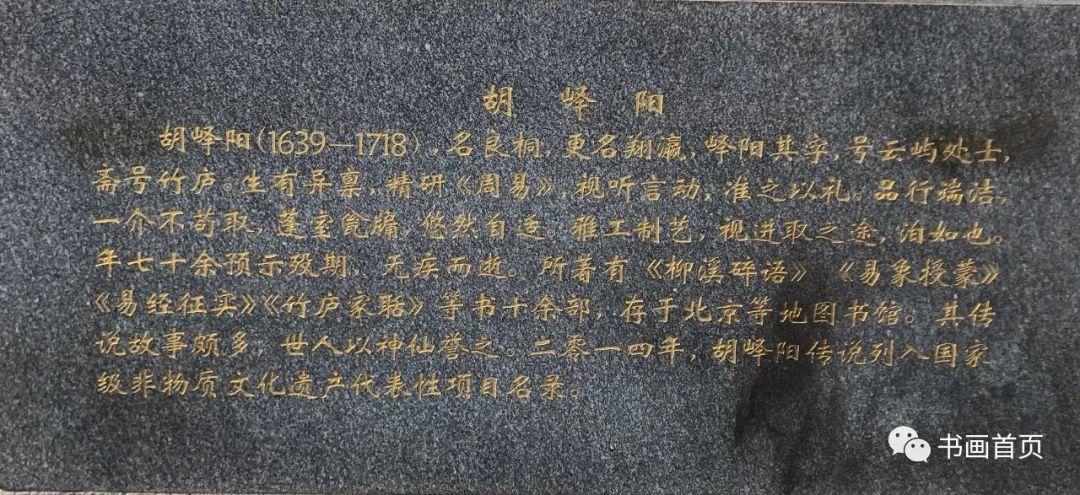 胡 峄 阳
胡峄阳(1639—1718),名良桐,更名翔瀛,峄阳其字,号云屿处士,
斋号竹庐。生有异禀,精研《周易》,视听言动,准之以礼。品行端洁,
一介不苟取,蓬室瓮牖,悠然自适。雅工制艺,视进取之途,泊如也。
年七十余预示殁期,无疾而逝。所著有《柳溪碎语》《易象授蒙》
《易经征实》《竹庐家聒》等书十余部,存于北京等地图书馆。其传
说故事颇多,世人以神仙誉之。二零一四年,胡峄阳传说列入国家
级非物质文化遗产代表性项目名录。
书画首页